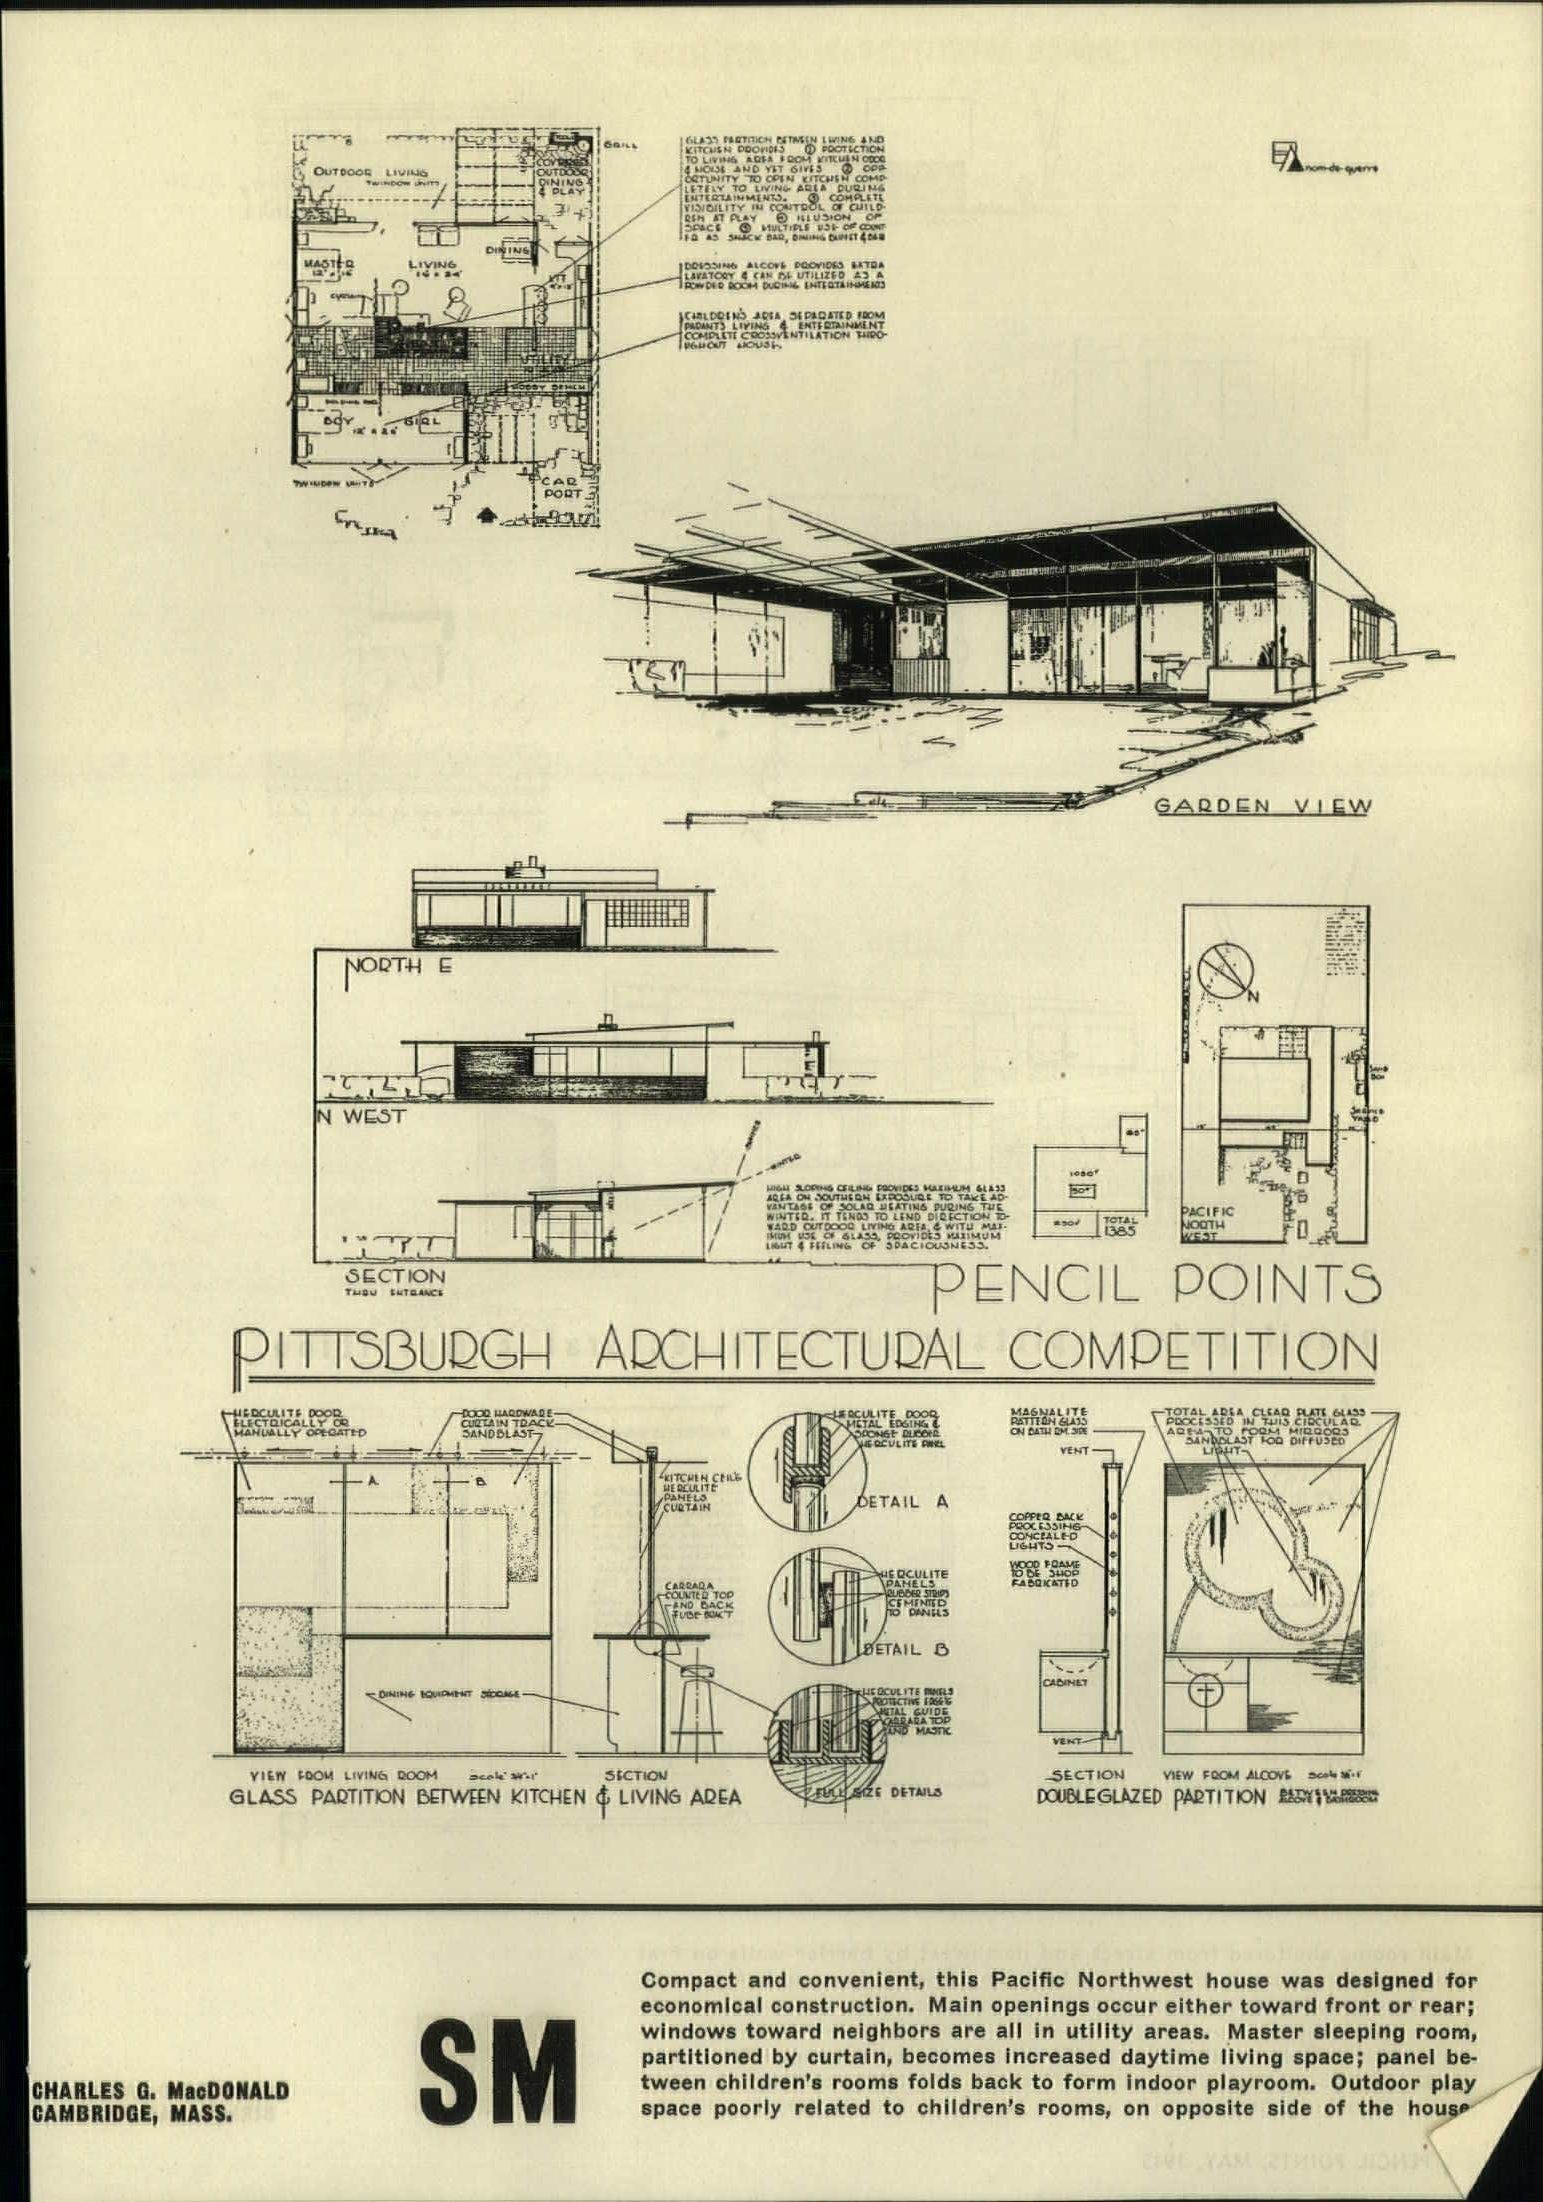 OUTDOOR LIVING
TWINDOW UNITS
COVERED
OUTDOOR
DINING
& PLAY
GRILL
DINING
MASTER
12' x 16'
LIVING
16 x 24'
KIT
CURTAIN
UTILITY
HOBBY BENCH
BOY GIRL
12' x 26'
TWINDOW UNITS
CAR
PORT
GLASS PARTITION BETWEEN LIVING AND
KITCHEN PROVIDES ① PROTECTION
TO LIVING AREA FROM KITCHEN ODOR
& NOISE AND YET GIVES ② OPP-
ORTUNITY TO OPEN KITCHEN COMP-
LETELY TO LIVING AREA DURING
ENTERTAINMENTS. ③ COMPLETE
VISIBILITY IN CONTROL OF CHILD-
REN AT PLAY ④ ILLUSION OF
SPACE ⑤ MULTIPLE USE OF COUNT
ER AS SNACK BAR, DINING BUFFET & BAR
DRESSING ALCOVE PROVIDES EXTRA
LAVATORY & CAN BE UTILIZED AS A
POWDER ROOM DURING ENTERTAINMENTS
CHILDREN'S AREA SEPARATED FROM
PARANTS LIVING & ENTERTAINMENT
COMPLETE CROSSVENTILATION THRO-
UGHOUT HOUSE.
nom-de-guerre
GARDEN VIEW
NORTH E
N WEST
SUMMER
WINTER
HIGH SLOPING CEILING PROVIDES MAXIMUM GLASS
AREA ON SOUTHERN EXPOSURE TO TAKE AD-
VANTAGE OF SOLAR HEATING DURING THE
WINTER. IT TENDS TO LEND DIRECTION TO-
WARD OUTDOOR LIVING AREA, & WITH MAX-
IMUM USE OF GLASS, PROVIDES MAXIMUM
LIGHT & FEELING OF SPACIOUSNESS.
SECTION
THRU ENTRANCE
TOTAL
1385
N
SAND
BOX
SERVICE
YARD
PACIFIC
NORTH
WEST
PENCIL POINTS
PITTSBURGH ARCHITECTURAL COMPETITION
HERCULITE DOOR
ELECTRICALLY OR
MANUALLY OPERATED
DOOR HARDWARE
CURTAIN TRACK
SANDBLAST
A
B
KITCHEN CEIL'G
HERCULITE
PANELS
CURTAIN
CARRARA
COUNTER TOP
AND BACK
TUBE BRAC'T
DINING EQUIPMENT STORAGE
VIEW FROM LIVING ROOM
SECTION
GLASS PARTITION BETWEEN KITCHEN & LIVING AREA
HERCULITE DOOR
METAL EDGING &
SPONGE RUBBER
HERCULITE PANEL
DETAIL A
HERCULITE
PANELS
RUBBER STRIPS
CEMENTED
TO PANELS
DETAIL B
HERCULITE PANELS
PROTECTIVE EDGE'G
METAL GUIDE
CARRARA TOP
AND MASTIC
FULL SIZE DETAILS
MAGNALITE
PATTERN GLASS
ON BATH RM. SIDE
VENT
COPPER BACK
PROCESSING
CONCEALED
LIGHTS
WOOD FRAME
TO BE SHOP
FABRICATED
CABINET
VENT
TOTAL AREA CLEAR PLATE GLASS
PROCESSED IN THIS CIRCULAR
AREA TO FORM MIRRORS
SANDBLAST FOR DIFFUSED
LIGHT
SECTION
VIEW FROM ALCOVE
DOUBLEGLAZED PARTITION BETWEEN DRESSING
ALCOVE & BATHROOM
CHARLES G. MacDONALD
CAMBRIDGE, MASS.
SM
Compact and convenient, this Pacific Northwest house was designed for
economical construction. Main openings occur either toward front or rear;
windows toward neighbors are all in utility areas. Master sleeping room,
partitioned by curtain, becomes increased daytime living space; panel be-
tween children's rooms folds back to form indoor playroom. Outdoor play
space poorly related to children's rooms, on opposite side of the house